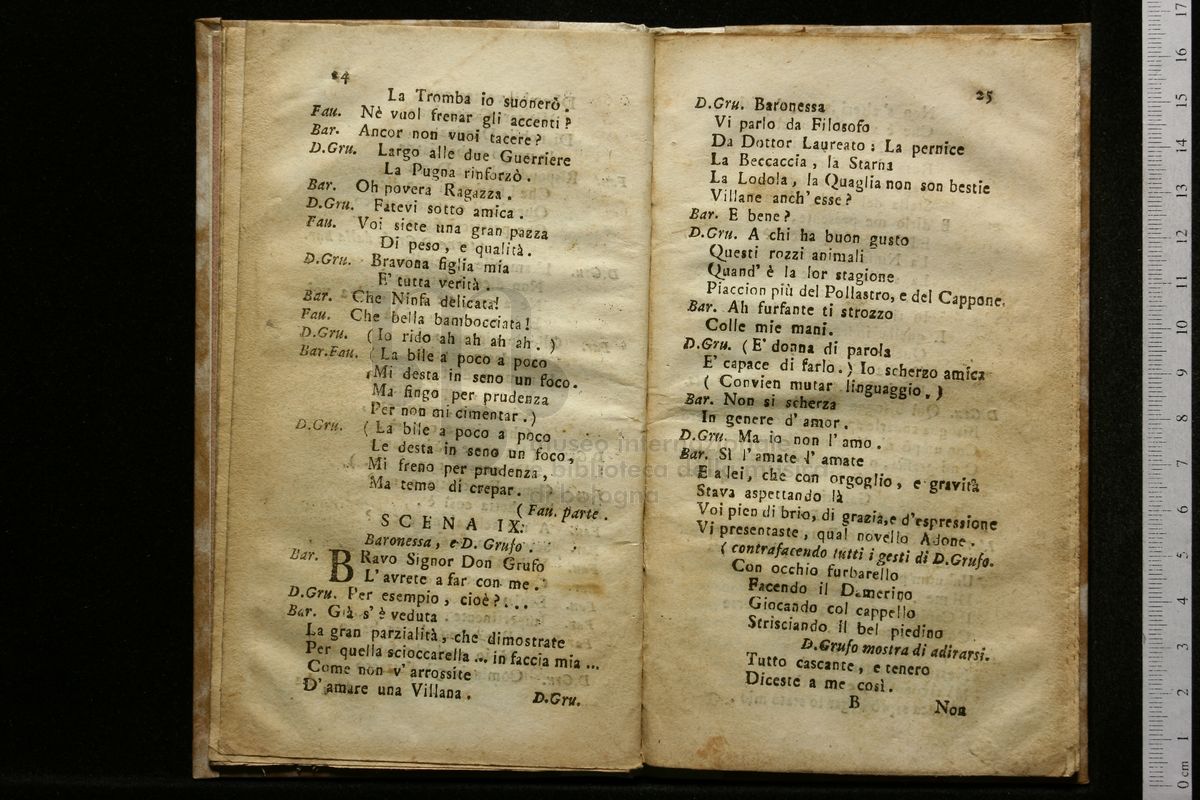 24
La Tromba io suonerò.
Fau. Nè vuol frenar gli accenti?
Bar. Ancor non vuoi tacere?
D.Gru. Largo alle due Guerriere
La Pugna rinforzò.
Bar. Oh povera Ragazza.
D.Gru. Fatevi sotto amica.
Fau. Voi siete una gran pazza
Di peso, e qualità.
D.Gru. Bravona figlia mia
E' tutta verità.
Bar. Che Ninfa delicata!
Fau. Che bella bambocciata!
D.Gru. (Io rido ah ah ah ah.)
Bar.Fau. (La bile a poco a poco
Mi desta in seno un foco.
Ma fingo per prudenza
Per non mi cimentar.)
D.Gru. (La bile a poco a poco
Le desta in seno un foco,
Mi freno per prudenza,
Ma temo di crepar.
(Fau. parte.
SCENA IX.
Baronessa, e D. Grufo.
Bar. BRavo Signor Don Grufo
L'avrete a far con me.
D.Gru. Per esempio, cioè?...
Bar. Già s'è veduta
La gran parzialità, che dimostrate
Per quella scioccarella ... in faccia mia ...
Come non v'arrossite
D'amare una Villana.
D.Gru.
25
D.Gru. Baronessa
Vi parlo da Filosofo
Da Dottor Laureato: La pernice
La Beccaccia, la Starna
La Lodola, la Quaglia non son bestie
Villane anch'esse?
Bar. E bene?
D.Gru. A chi ha buon gusto
Questi rozzi animali
Quand'è la lor stagione
Piaccion più del Pollastro, e del Cappone.
Bar. Ah furfante ti strozzo
Colle mie mani.
D.Gru. (E' donna di parola
E' capace di farlo.) Io scherzo amica
(Convien mutar linguaggio.)
Bar. Non si scherza
In genere d'amor.
D.Gru. Ma io non l'amo.
Bar. Sì l'amate l'amate
E a lei, che con orgoglio, e gravità
Stava aspettando là
Voi pien di brio, di grazia, e d'espressione
Vi presentaste, qual novello Adone.
(contrafacendo tutti i gesti di D.Grufo.
Con occhio furbarello
Facendo il Damerino
Giocando col cappello
Strisciando il bel piedino
D.Grufo mostra di adirarsi.
Tutto cascante, e tenero
Diceste a me così.
B
Non
museo internazionale
e biblioteca della musica
di bologna
0 cm 1 2 3 4 5 6 7 8 9 10 11 12 13 14 15 16 17